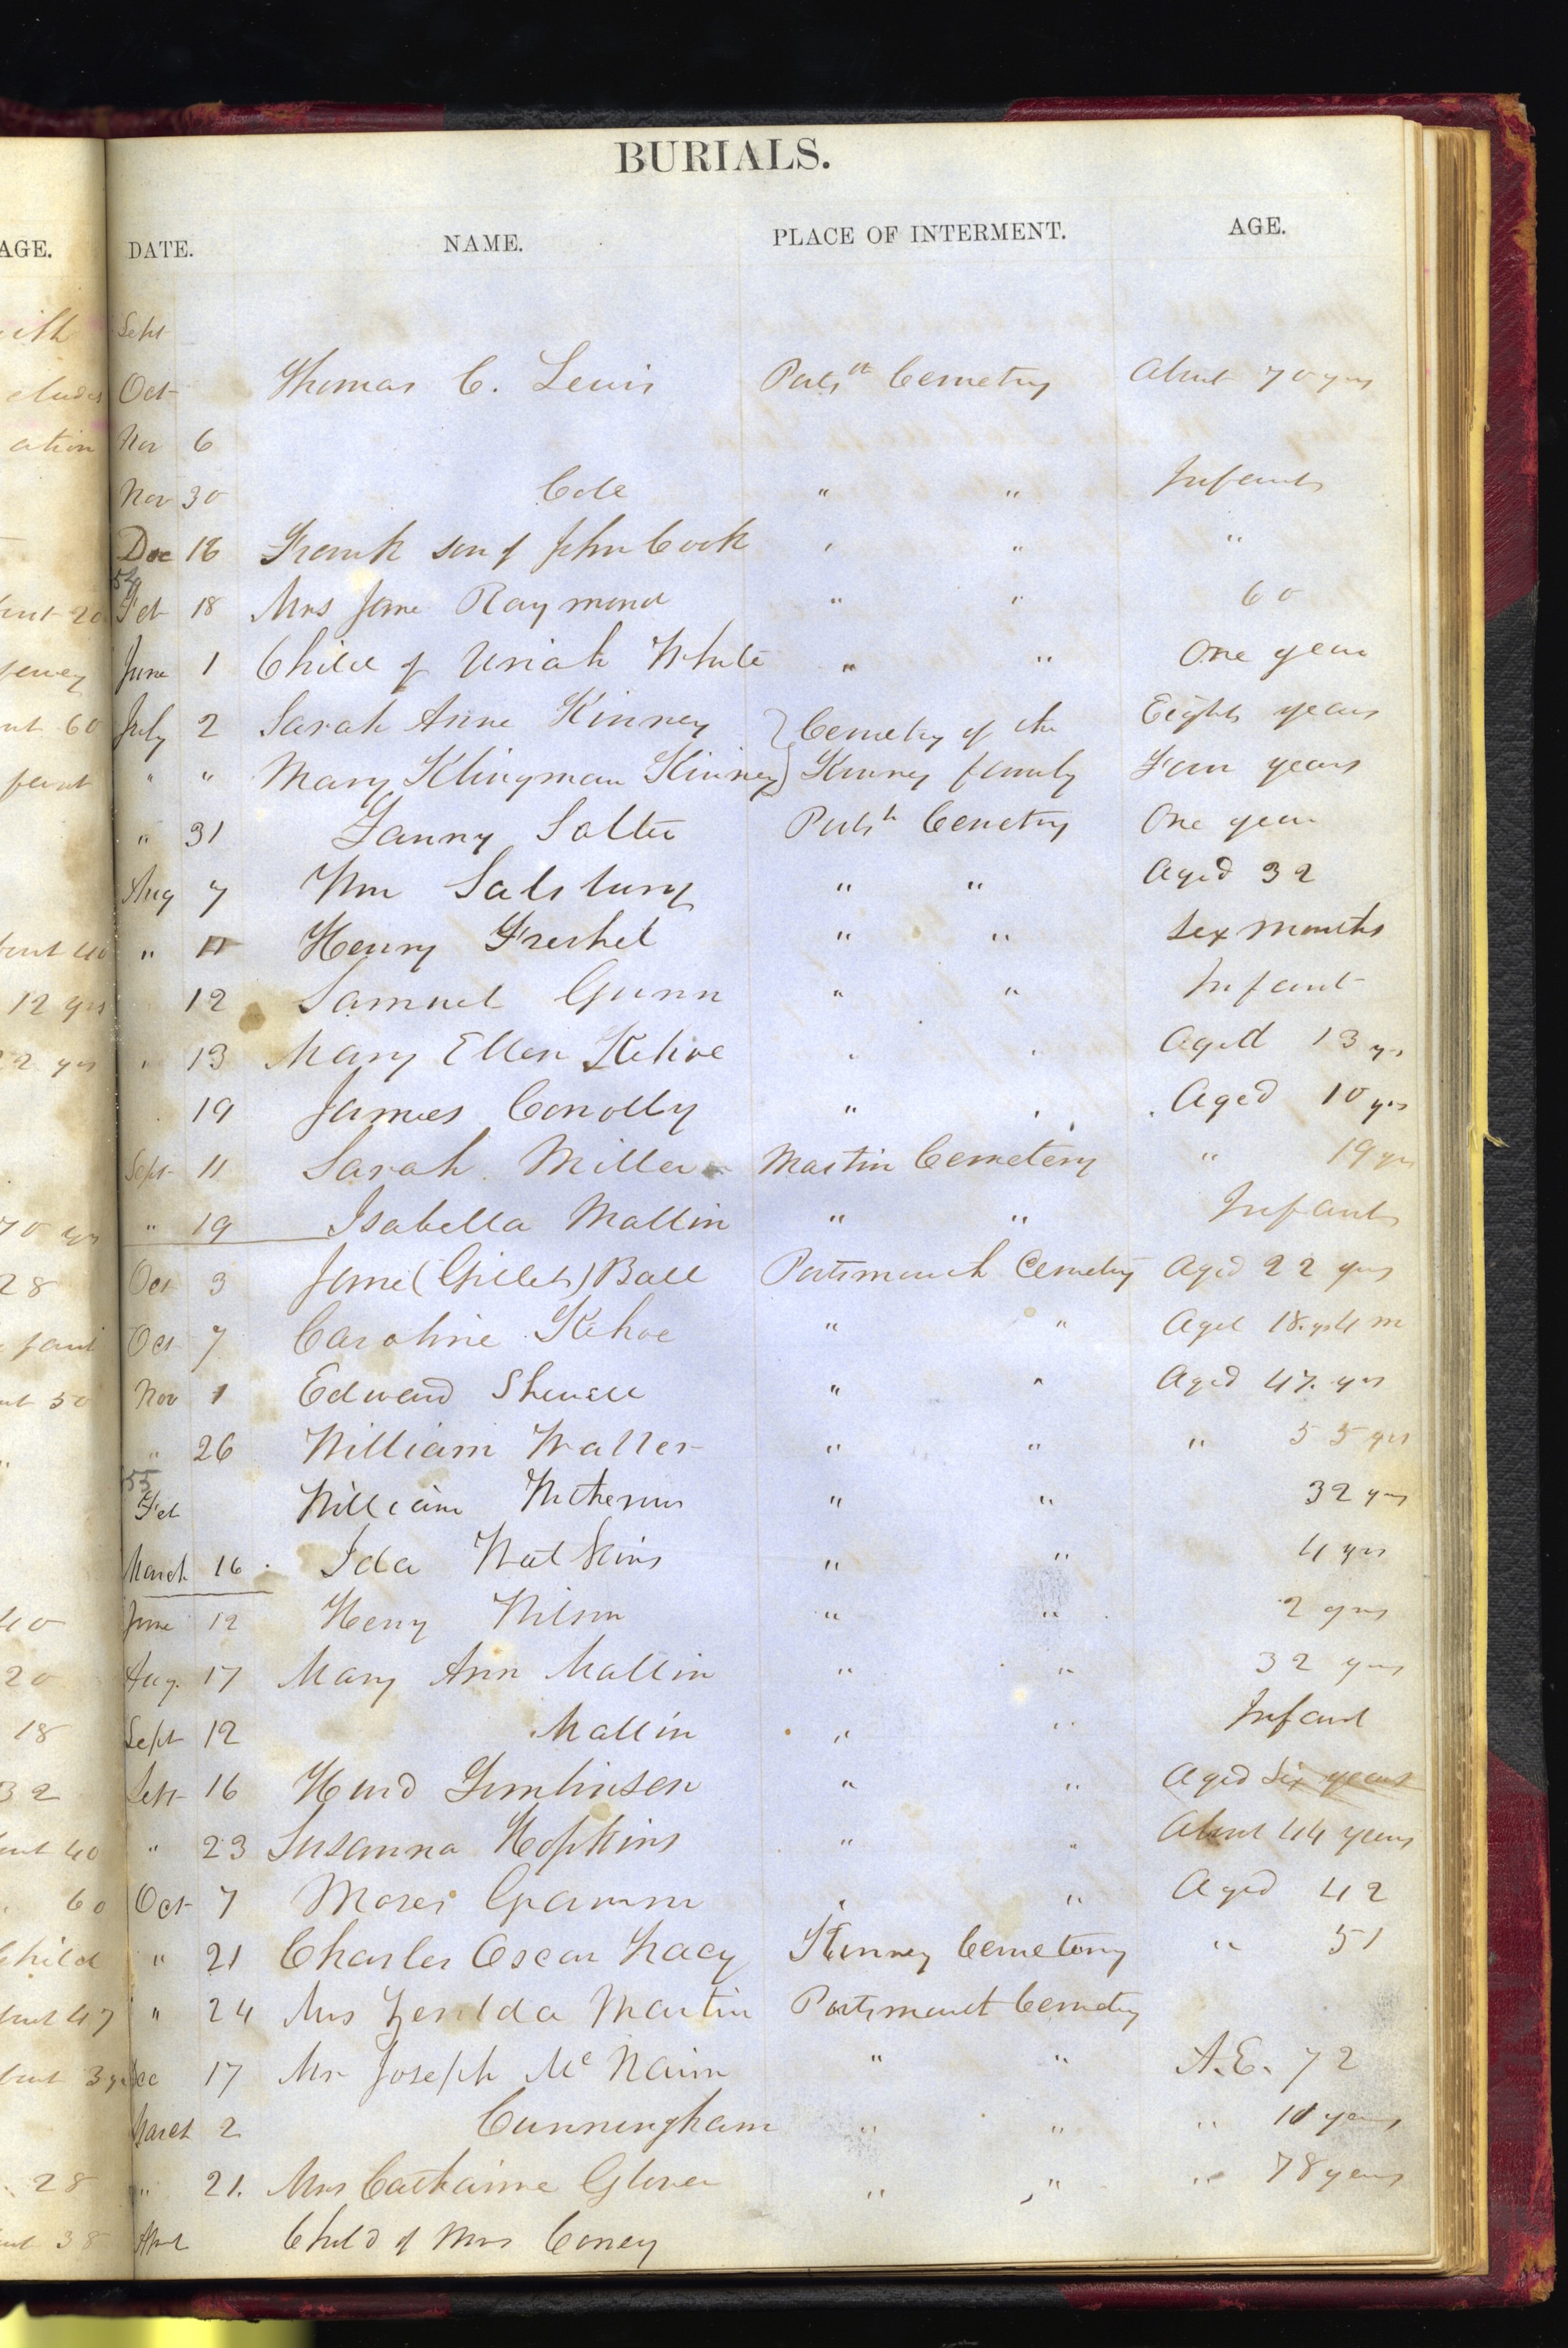 BURIALS.
AGE. DATE. NAME. PLACE OF INTERMENT. AGE.
Sept
Oct Thomas C. Lewis Ports th Cemetry About 70 yrs
ation Nov 6
Nov 30 Cole " " Infant
Dec 18 Frank son of John Cook " " "
54 Feb 18 Mrs Jane Raymond " " 60
June 1 Child of Uriah White " " One year
July 2 Sarah Anne Kinney } Cemetry of the Eight years
" " Mary Klingman Kinney } Kinney family Four years
" 31 Fanny Salter Ports h Cemetry One year
Aug 7 Wm Salsbury " " Aged 32
" 11 Henry Freshel " " Six Months
12 Samuel Gunn " " Infant
12 yrs " 13 Mary Ellen Kehoe " " Aged 13 ys
19 James Conolly " " Aged 10 yrs
Sept 11 Sarah Miller Martin Cemetery " 19 yrs
" 19 Isabella Mallin " " Infant
28 Oct 3 Jane (Gillet) Ball Portsmouth Cemetry Aged 22 yrs
Oct 7 Caroline Kehoe " " Aged 18. ys 4 m
Nov 1 Edward " " Aged 47. yrs
" 26 William Waller " " " 55 yrs
55 Feb William " " 32 yrs
March 16 Ida Watkins " " 4 yrs
40 June 12 Henry Wilson " " 2 yrs
20 Aug. 17 Mary Ann Mallin " " 32 yrs
18 Sept 12 Mallin " " Infant
32 Sept 16 Hurd Tomlinson " " Aged Six years
40 " 23 Susanna Hopkins " " About 44 years
60 Oct 7 Moses Gramm " " Aged 42
Child " 21 Charles Oscar Tracy Kinney Cemetery " 51
47 " 24 Mrs Martin Portsmouth Cemetry
Dec 17 Mr Joseph McNairn " " A.E. 72
March 2 Cunningham " " " 10 years
28 " 21. Mrs Catharine Glover " " " 78 years
38 April Child of Mrs Coney